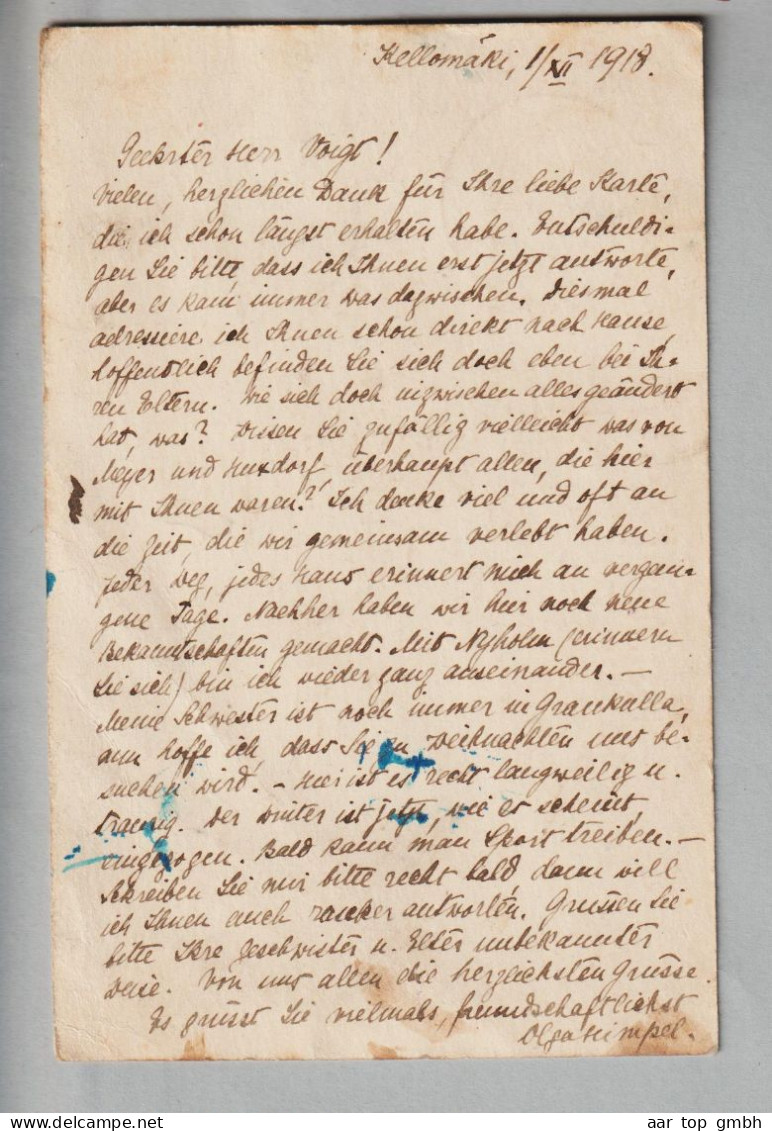 Kellomäki, 1/XII 1918.
Geehrter Herr Voigt!
Vielen, herzlichen Dank für Ihre liebe Karte,
die ich schon längst erhalten habe. Entschuldi-
gen Sie bitte, dass ich Ihnen erst jetzt antworte,
aber es kam immer was dazwischen. Diesmal
adressiere ich Ihnen schon direkt nach Hause,
hoffentlich befinden Sie sich doch eben bei Ih-
ren Eltern. Wie sich doch inzwischen alles geändert
hat, was? Wissen Sie zufällig vielleicht was von
Meyer und Huxdorf, überhaupt allen, die hier
mit Ihnen waren? Ich denke viel und oft an
die Zeit, die wir gemeinsam verlebt haben.
Jeder Weg, jedes Haus erinnert mich an vergan-
gene Tage. Nachher haben wir hier noch neue
Bekanntschaften gemacht. Mit Nyholm (erinnern
Sie sich) bin ich wieder ganz auseinander. —
Meine Schwester ist noch immer in Grankulla,
nun hoffe ich, dass Sie zu Weihnachten uns be-
suchen wird. — Hier ist es recht langweilig u.
traurig. Der Winter ist jetzt, wie es scheint,
eingezogen. Bald kann man Sport treiben. —
Schreiben Sie mir bitte recht bald, dann will
ich Ihnen auch rascher antworten. Grüssen Sie
bitte Ihre Geschwister u. Elter unbekannter
weise. Von uns allen die herzlichsten Grüsse.
Es grüsst Sie vielmals, freundschaftlichst
Olga Himpel.
aar top gmbh
www.delcampe.net